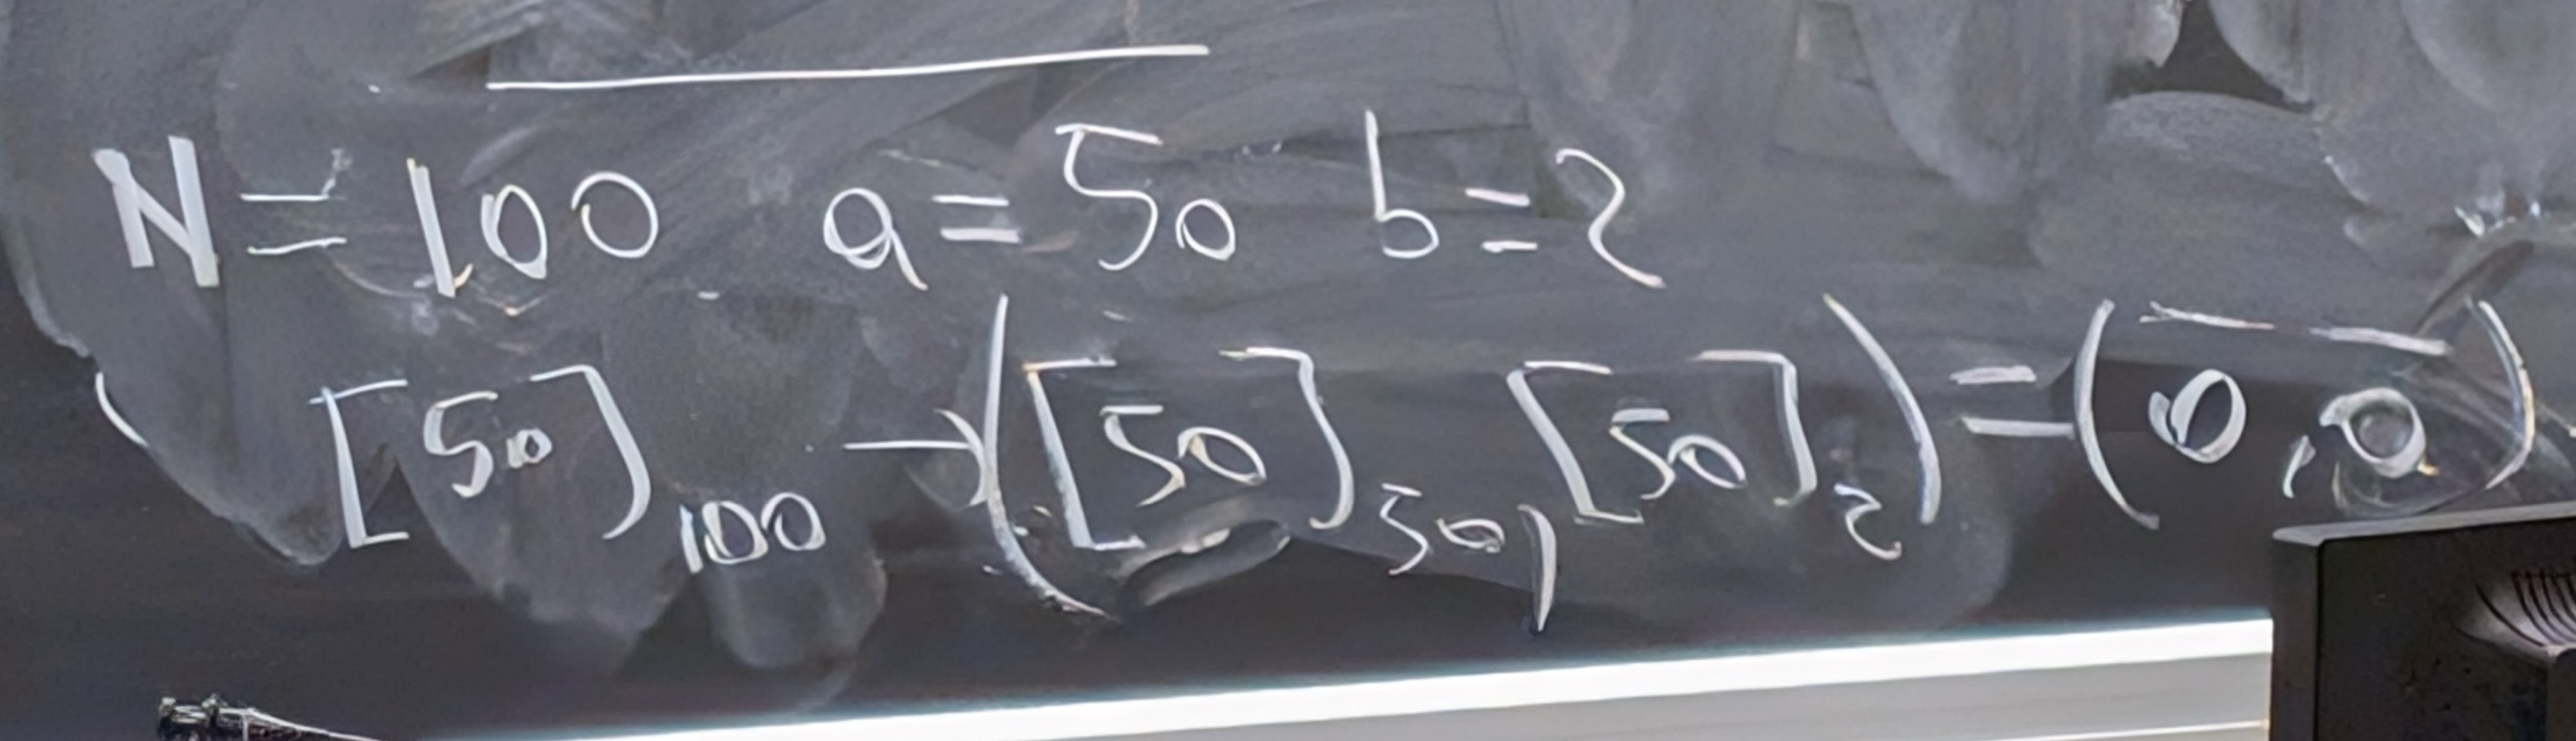 N = 100 a = 50 b = 2
[50]₁₀₀ → ([50]₅₀, [50]₂) = (0̅, 0̅)